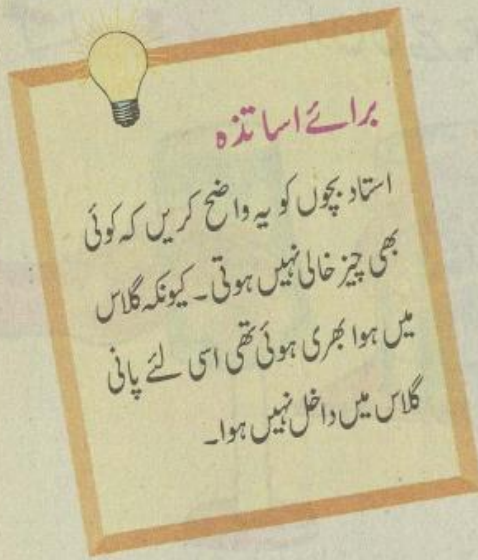 برائے اساتذہ
استاد بچوں کو یہ واضح کریں کہ کوئی
بھی چیز خالی نہیں ہوتی۔ کیونکہ گلاس
میں ہوا بھری ہوئی تھی اسی لئے پانی
گلاس میں داخل نہیں ہوا۔